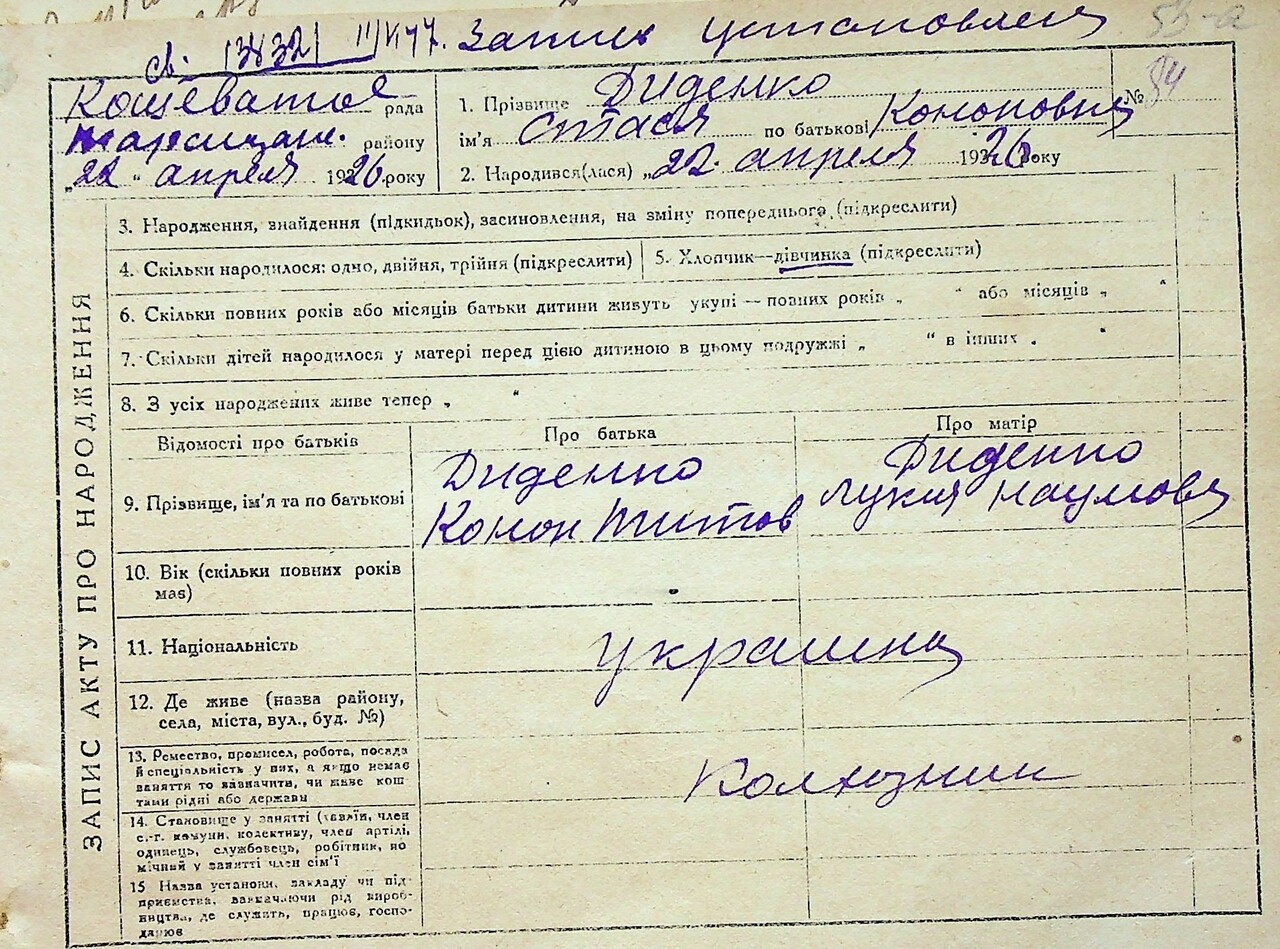 55-а
св. 13832 11/VI 77. Запись установлена
Кошеватое рада
Таращан. району
„22 “ апреля 1926 року
1. Прізвище Диденко
ім'я Стася по батькові Кононовна
2. Народився(лася) „22 апреля 1926 року
№ 84
ЗАПИС АКТУ ПРО НАРОДЖЕННЯ
3. Народження, знайдення (підкидьок), засиновлення, на зміну попереднього (підкреслити)
4. Скільки народилося: одно, двійня, трійня (підкреслити)
5. Хлопчик—дівчинка (підкреслити)
6. Скільки повних років або місяців батьки дитини живуть укупі — повних років „ “ або місяців „ “
7. Скільки дітей народилося у матері перед цією дитиною в цьому подружжі „ “ в інших „ “
8. З усіх народжених живе тепер „ “
Відомості про батьків
Про батька
Про матір
9. Прізвище, ім'я та по батькові
Диденко
Конон Титов
Диденко
Лукия Наумовн
10. Вік (скільки повних років
має)
11. Національність
украина
12. Де живе (назва району,
села, міста, вул., буд. №)
13. Ремество, промисел, робота, посада
й спеціальність у них, а якщо немає
заняття то зазначити, чи живе кош
тами рідні або держави
Колхозник
14. Становище у занятті (хазяїн, член
с.-г. комуни, колективу, член артілі,
одинець, службовець, робітник, по
мічний у занятті член сім'ї
15 Назва установи, закладу чи під
приємства, зазначаючи рід вироб-
ництва, де служить, працює, госпо-
дарює